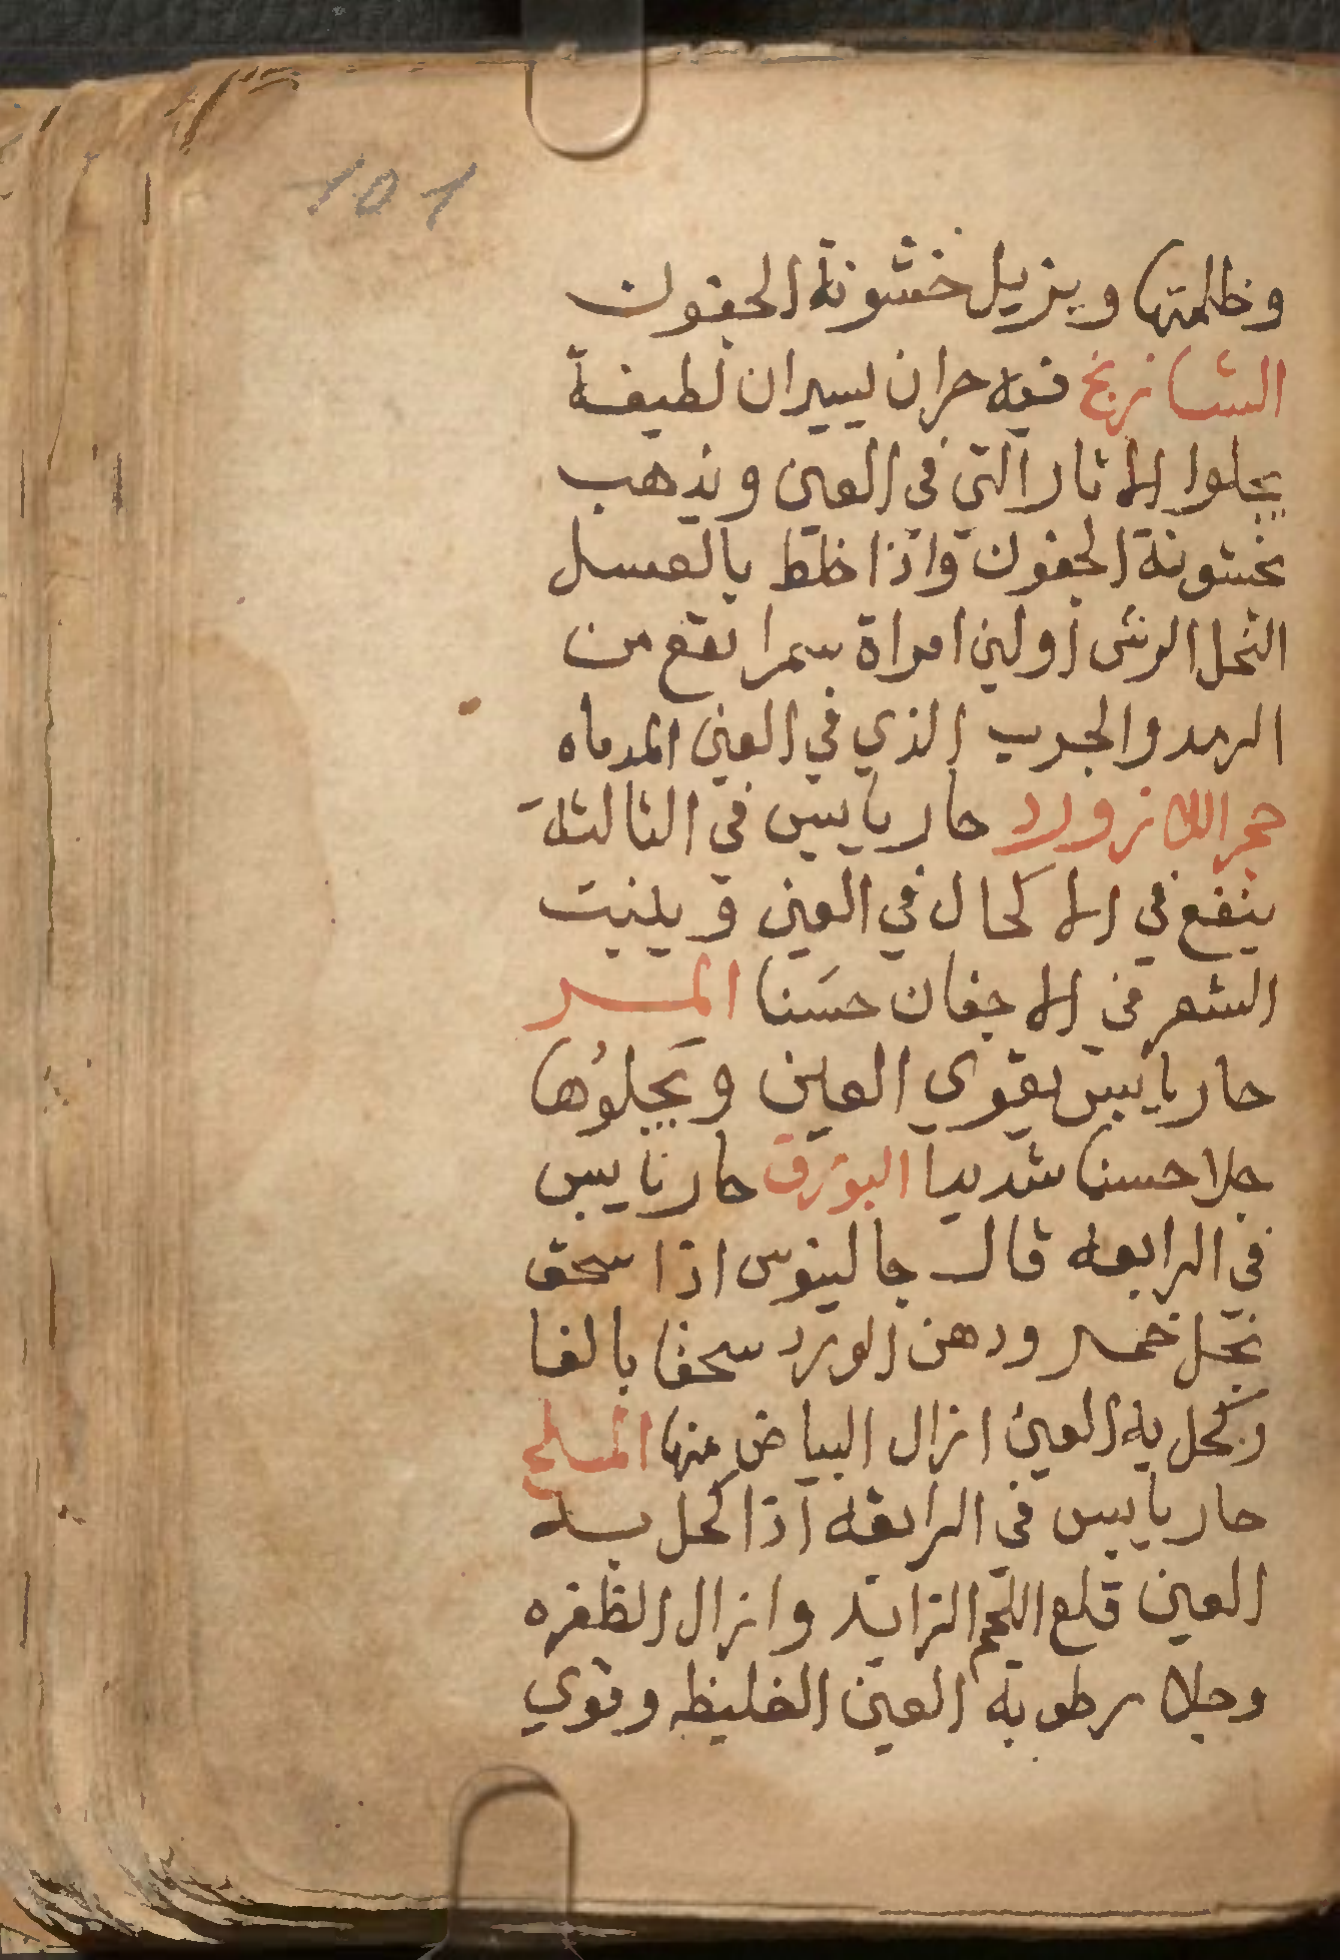 101
وظلمتها ويزيل خشونة الجفون
الشازنج فيه حران يسيران لطيفة
يجلوا الاثار التي في العين ويذهب
بخشونة الجفون واذا خلط بالعسل
النحل او لبن امراة سمرا نفع من
الرمد والجرب الذي في العين
حجر اللازورد حار يابس في الثالثة
ينفع في الاكحال في العين وينبت
الشعر في الاجفان حسنا المسر
حار يابس يقوي العين ويجلوها
جلا حسنا شديدا البورق حار يابس
في الرابعه قال جالينوس اذا سحق
بخل خمر ودهن الورد سحقا بالغا
وكحل به العين ازال البياض منها الملح
حار يابس في الرابعه اذا كحل به
العين قلع اللحم الزايد وازال الظفره
وجلا رطوبة العين الغليظه وقوي